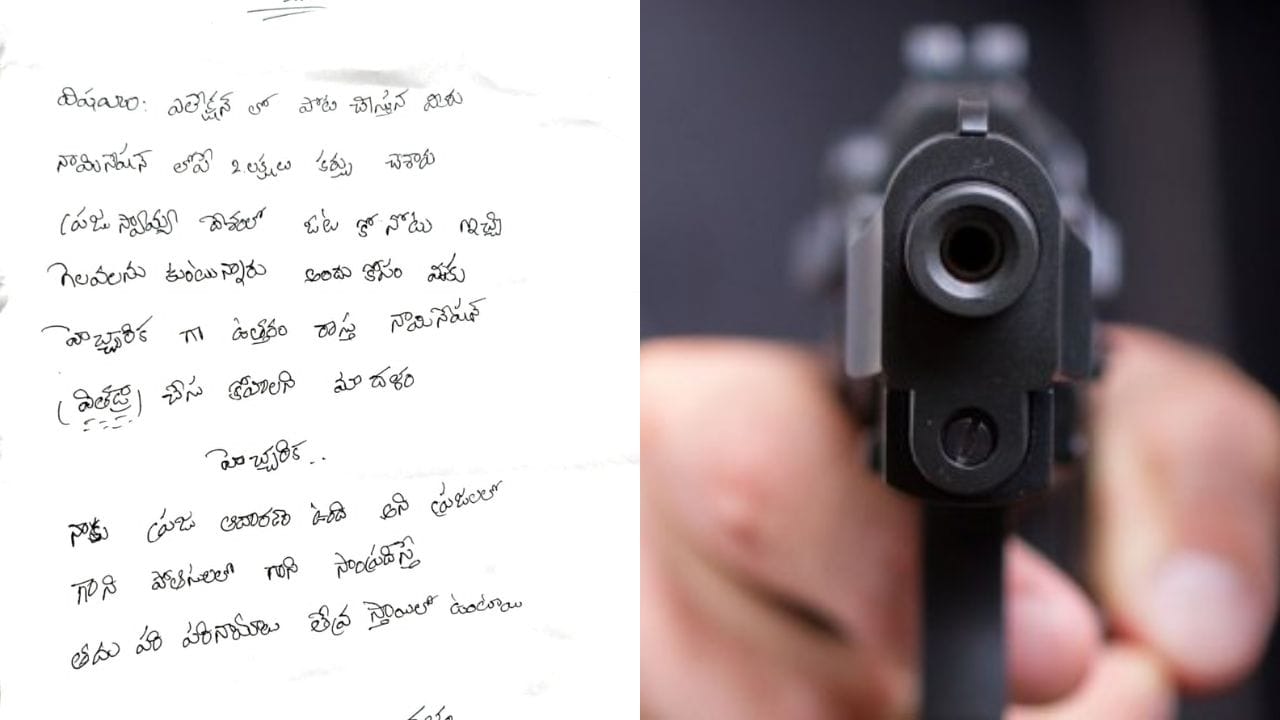 విషయం: ఎలక్షన్ లో పోటి చేస్తున మీరు
నామినేషన్ లోపే 2 లక్షలు కర్చు చేశారు
ప్రజా స్వామ్య దేశంలో ఓటు కో నోటు ఇచ్చి
గెలవలను కుంటున్నారు అందు కోసం మీకు
హెచ్చారిక గా ఉత్తరం రాస్తు నామినేషన్
(వితడ్రా) చేసు కోవాలని మా దళం
హెచ్చరిక..
నాకు ప్రజా ఆదారణా ఉంది అని ప్రజలలో
గాని పోలీసులలో గాని సంప్రదిస్తే
తదు పరి పరినామాలు తీవ్ర స్తాయిలో ఉంటాయి